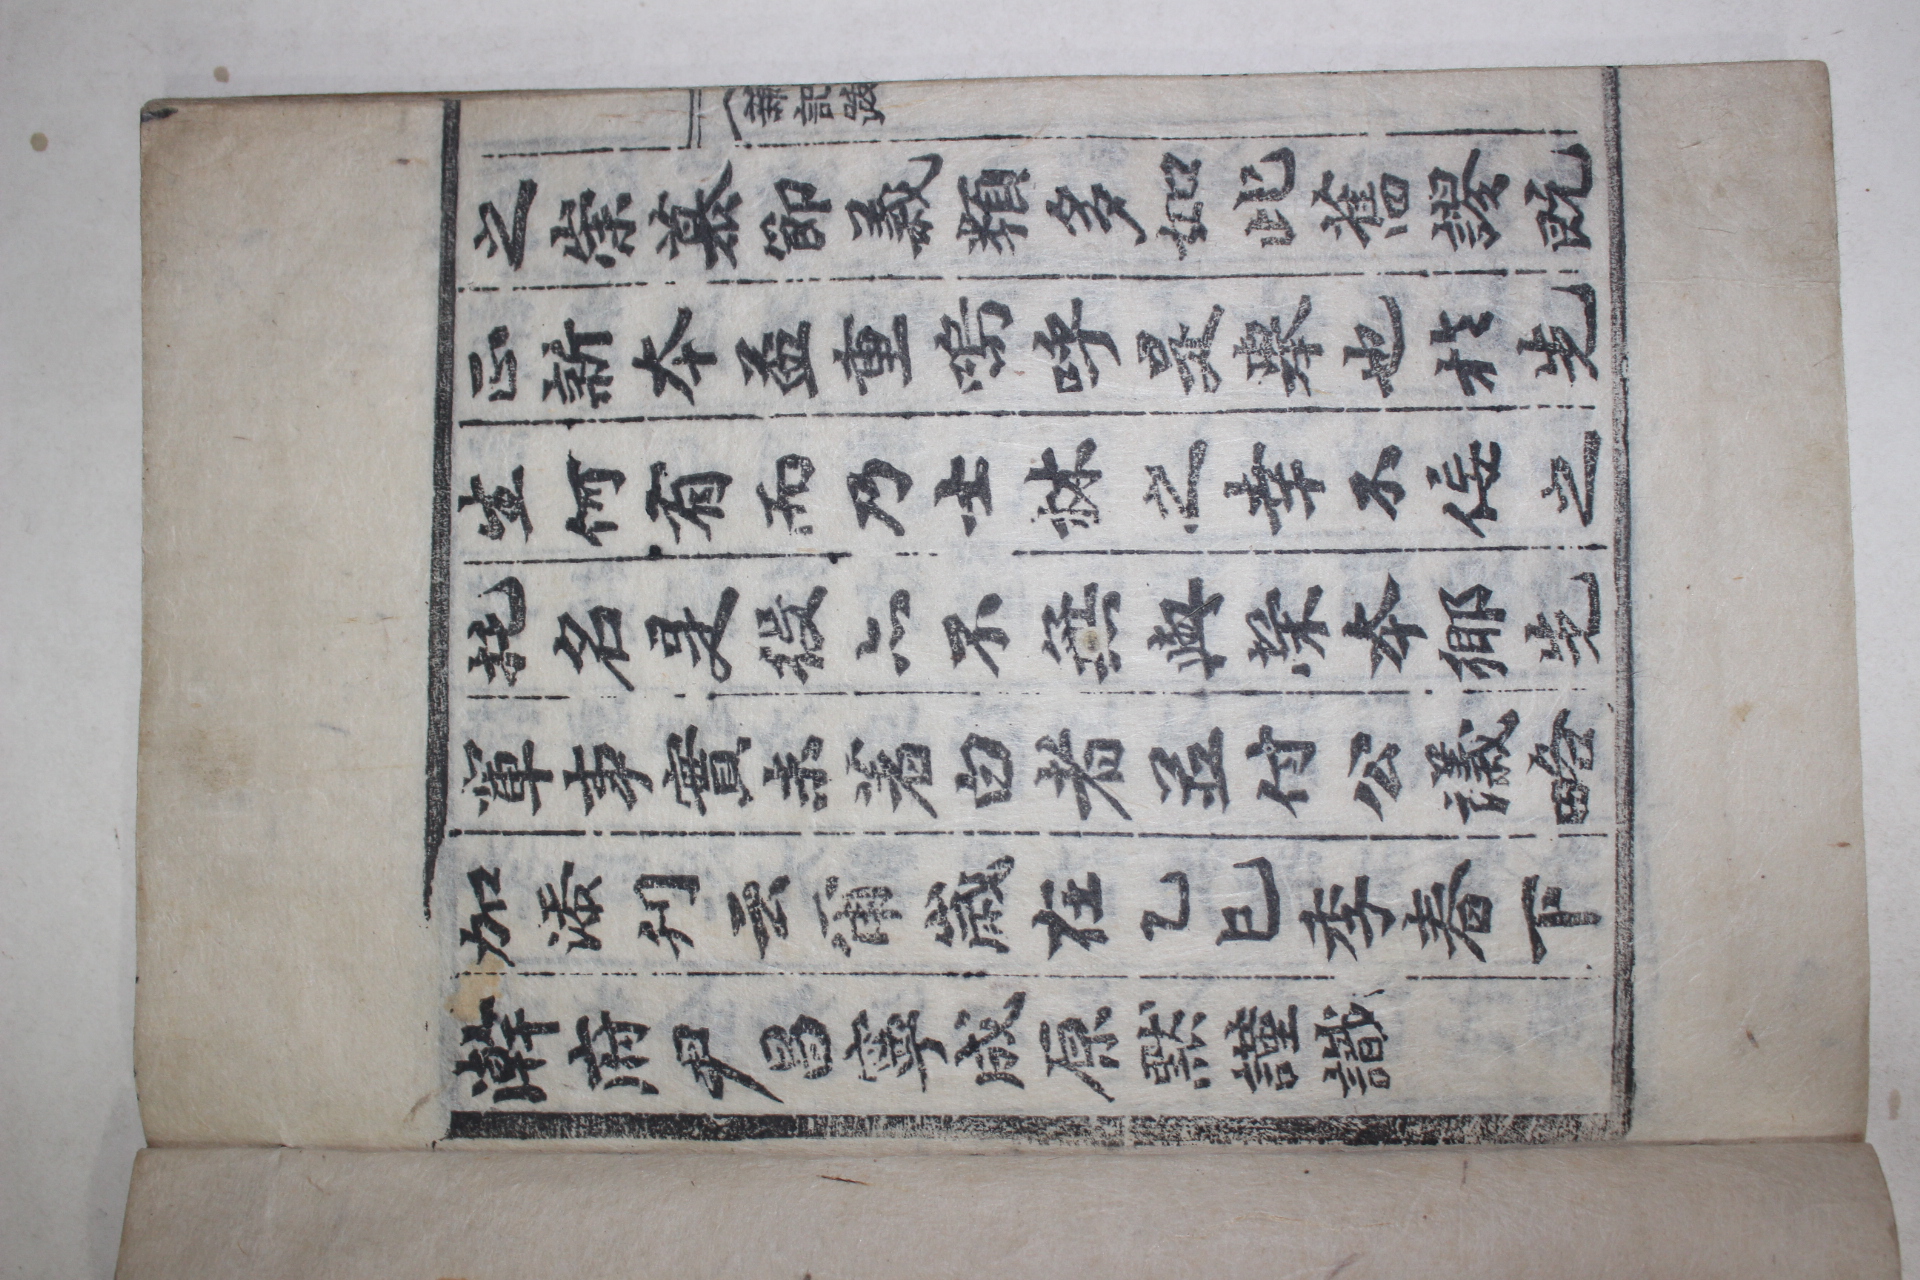 之崇慕節義類多如此舊謬既
正新本益重嗚呼是擧也於先
生何有而乃士林之幸不佞之
托名是役亦不無與榮本鄕先
輩事實未著白者並付公議略
加添刊云爾歲在乙巳季春下
澣府尹昌寧成原默謹識
記跋